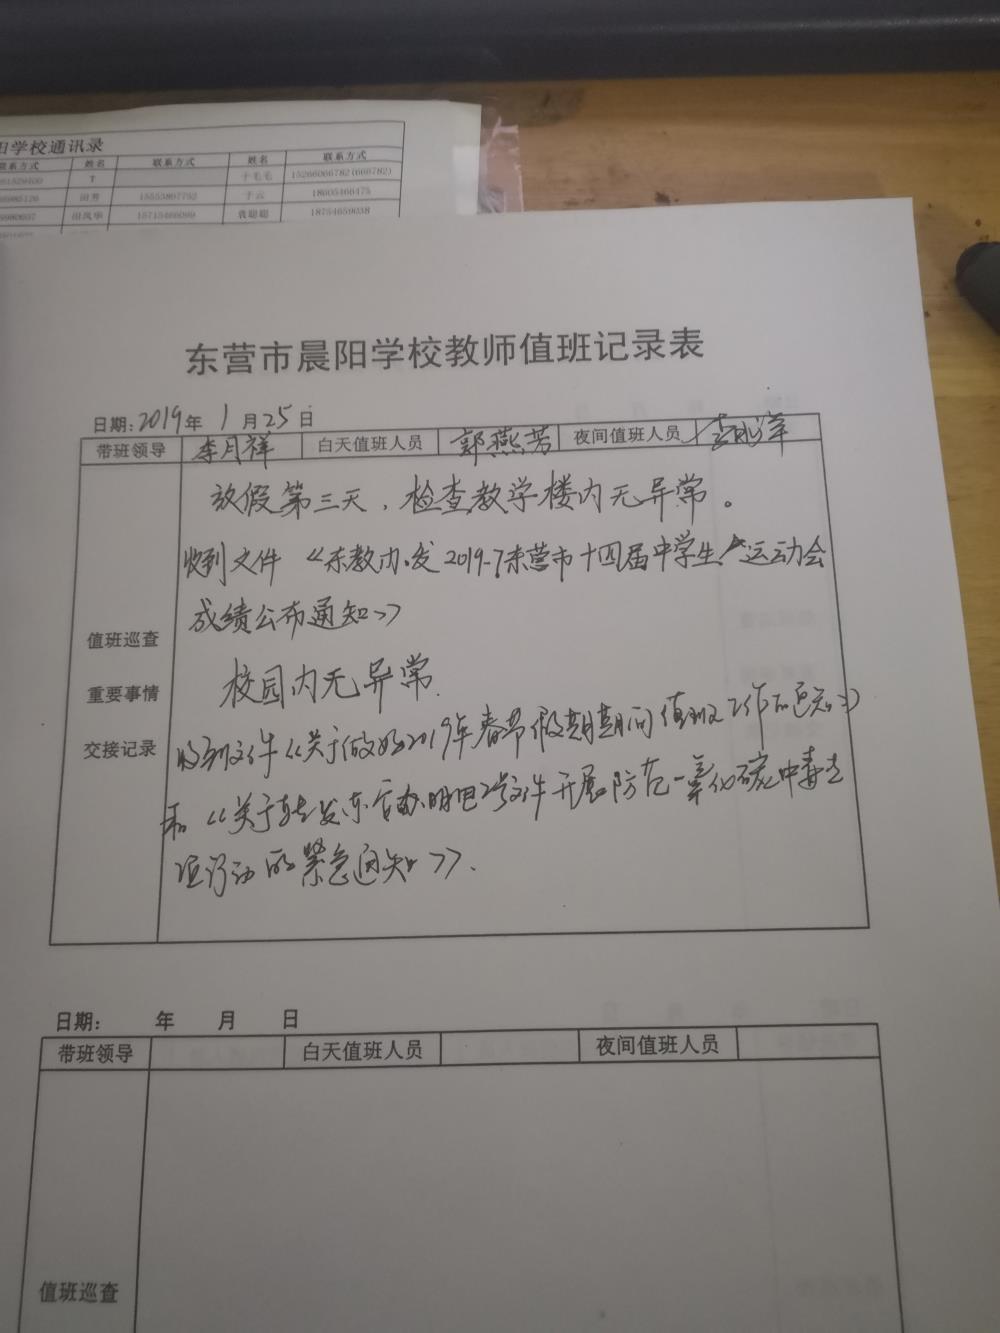 阳学校通讯录
联系方式 姓名 联系方式 姓名 联系方式
于毛毛 15266066782(666782)
田芳 15553867752 于云 18605466475
田凤华 15715466099 袁聪聪 18754659038
东营市晨阳学校教师值班记录表
日期:2019年 1月25日
带班领导 李月祥 白天值班人员 郭燕芳 夜间值班人员
放假第三天,检查教学楼内无异常。
收到文件《东教办发2019-7东营市十四届中学生运动会
成绩公布通知》
值班巡查
校园内无异常.
重要事情
收到文件《关于做好2019年春节假期期间值班工作的通知》
交接记录
和《关于转发东营办明电2号文件开展防范一氧化碳中毒专
项行动的紧急通知》.
日期: 年 月 日
带班领导 白天值班人员 夜间值班人员
值班巡查